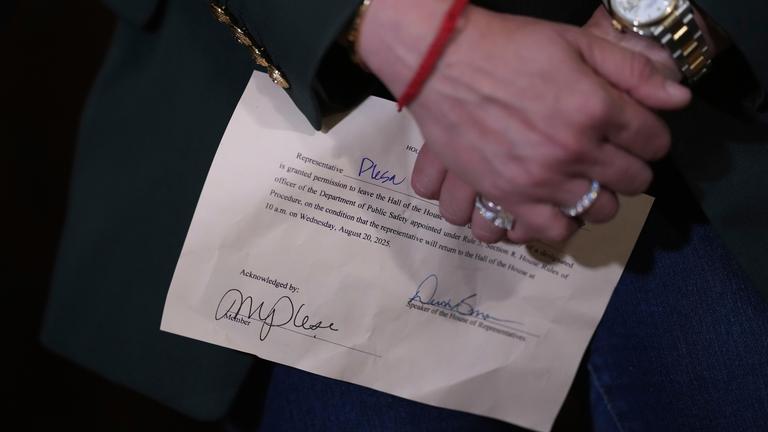 HOU
Representative Plesa
is granted permission to leave the Hall of the House a designated
officer of the Department of Public Safety appointed under Rule 5, Section 8, House Rules of
Procedure, on the condition that the representative will return to the Hall of the House at
10 a.m. on Wednesday, August 20, 2025.
Acknowledged by:
Member
Speaker of the House of Representatives